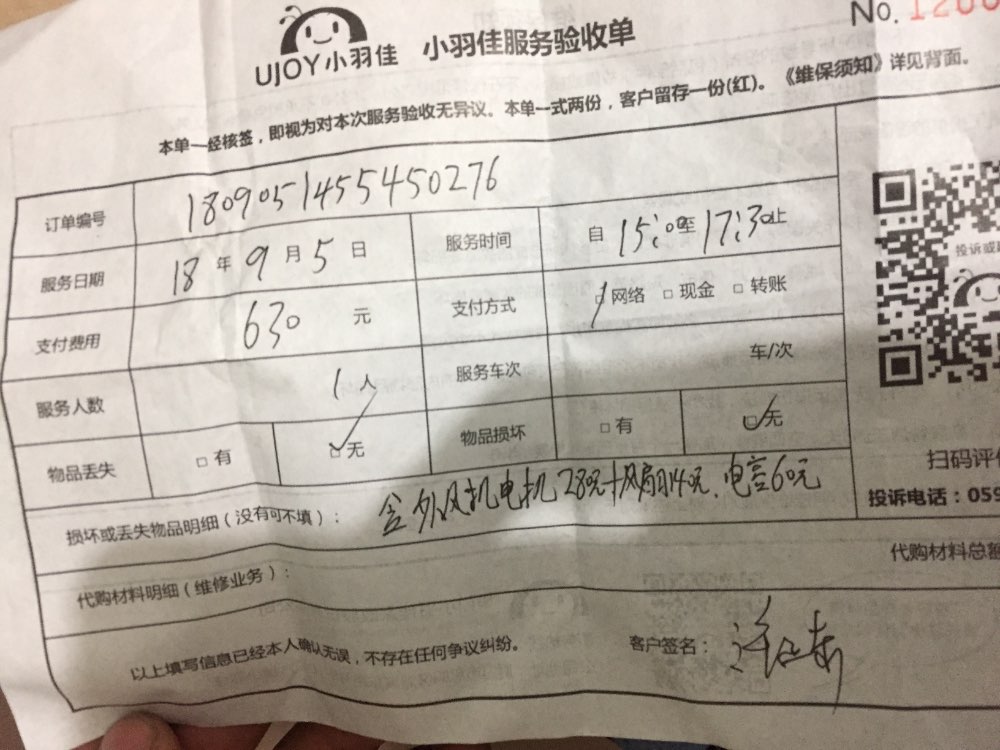 No. 1200
UJOY小羽佳 小羽佳服务验收单
本单一经核签，即视为对本次服务验收无异议。本单一式两份，客户留存一份(红)。《维保须知》详见背面。
订单编号 180905145545 0276
服务日期 18 年 9 月 5 日 服务时间 自 15:0至 17:30止
支付费用 630 元 支付方式 □网络 □现金 □转账
投诉或
服务人数 1人 服务车次 车/次
物品丢失 □有 □无 物品损坏 □有 □无
扫码评
损坏或丢失物品明细（没有可不填）： 含外风机电机280元+风扇140元、电容60元
投诉电话：059
代购材料明细（维修业务）： 代购材料总
以上填写信息已经本人确认无误，不存在任何争议纠纷。 客户签名：